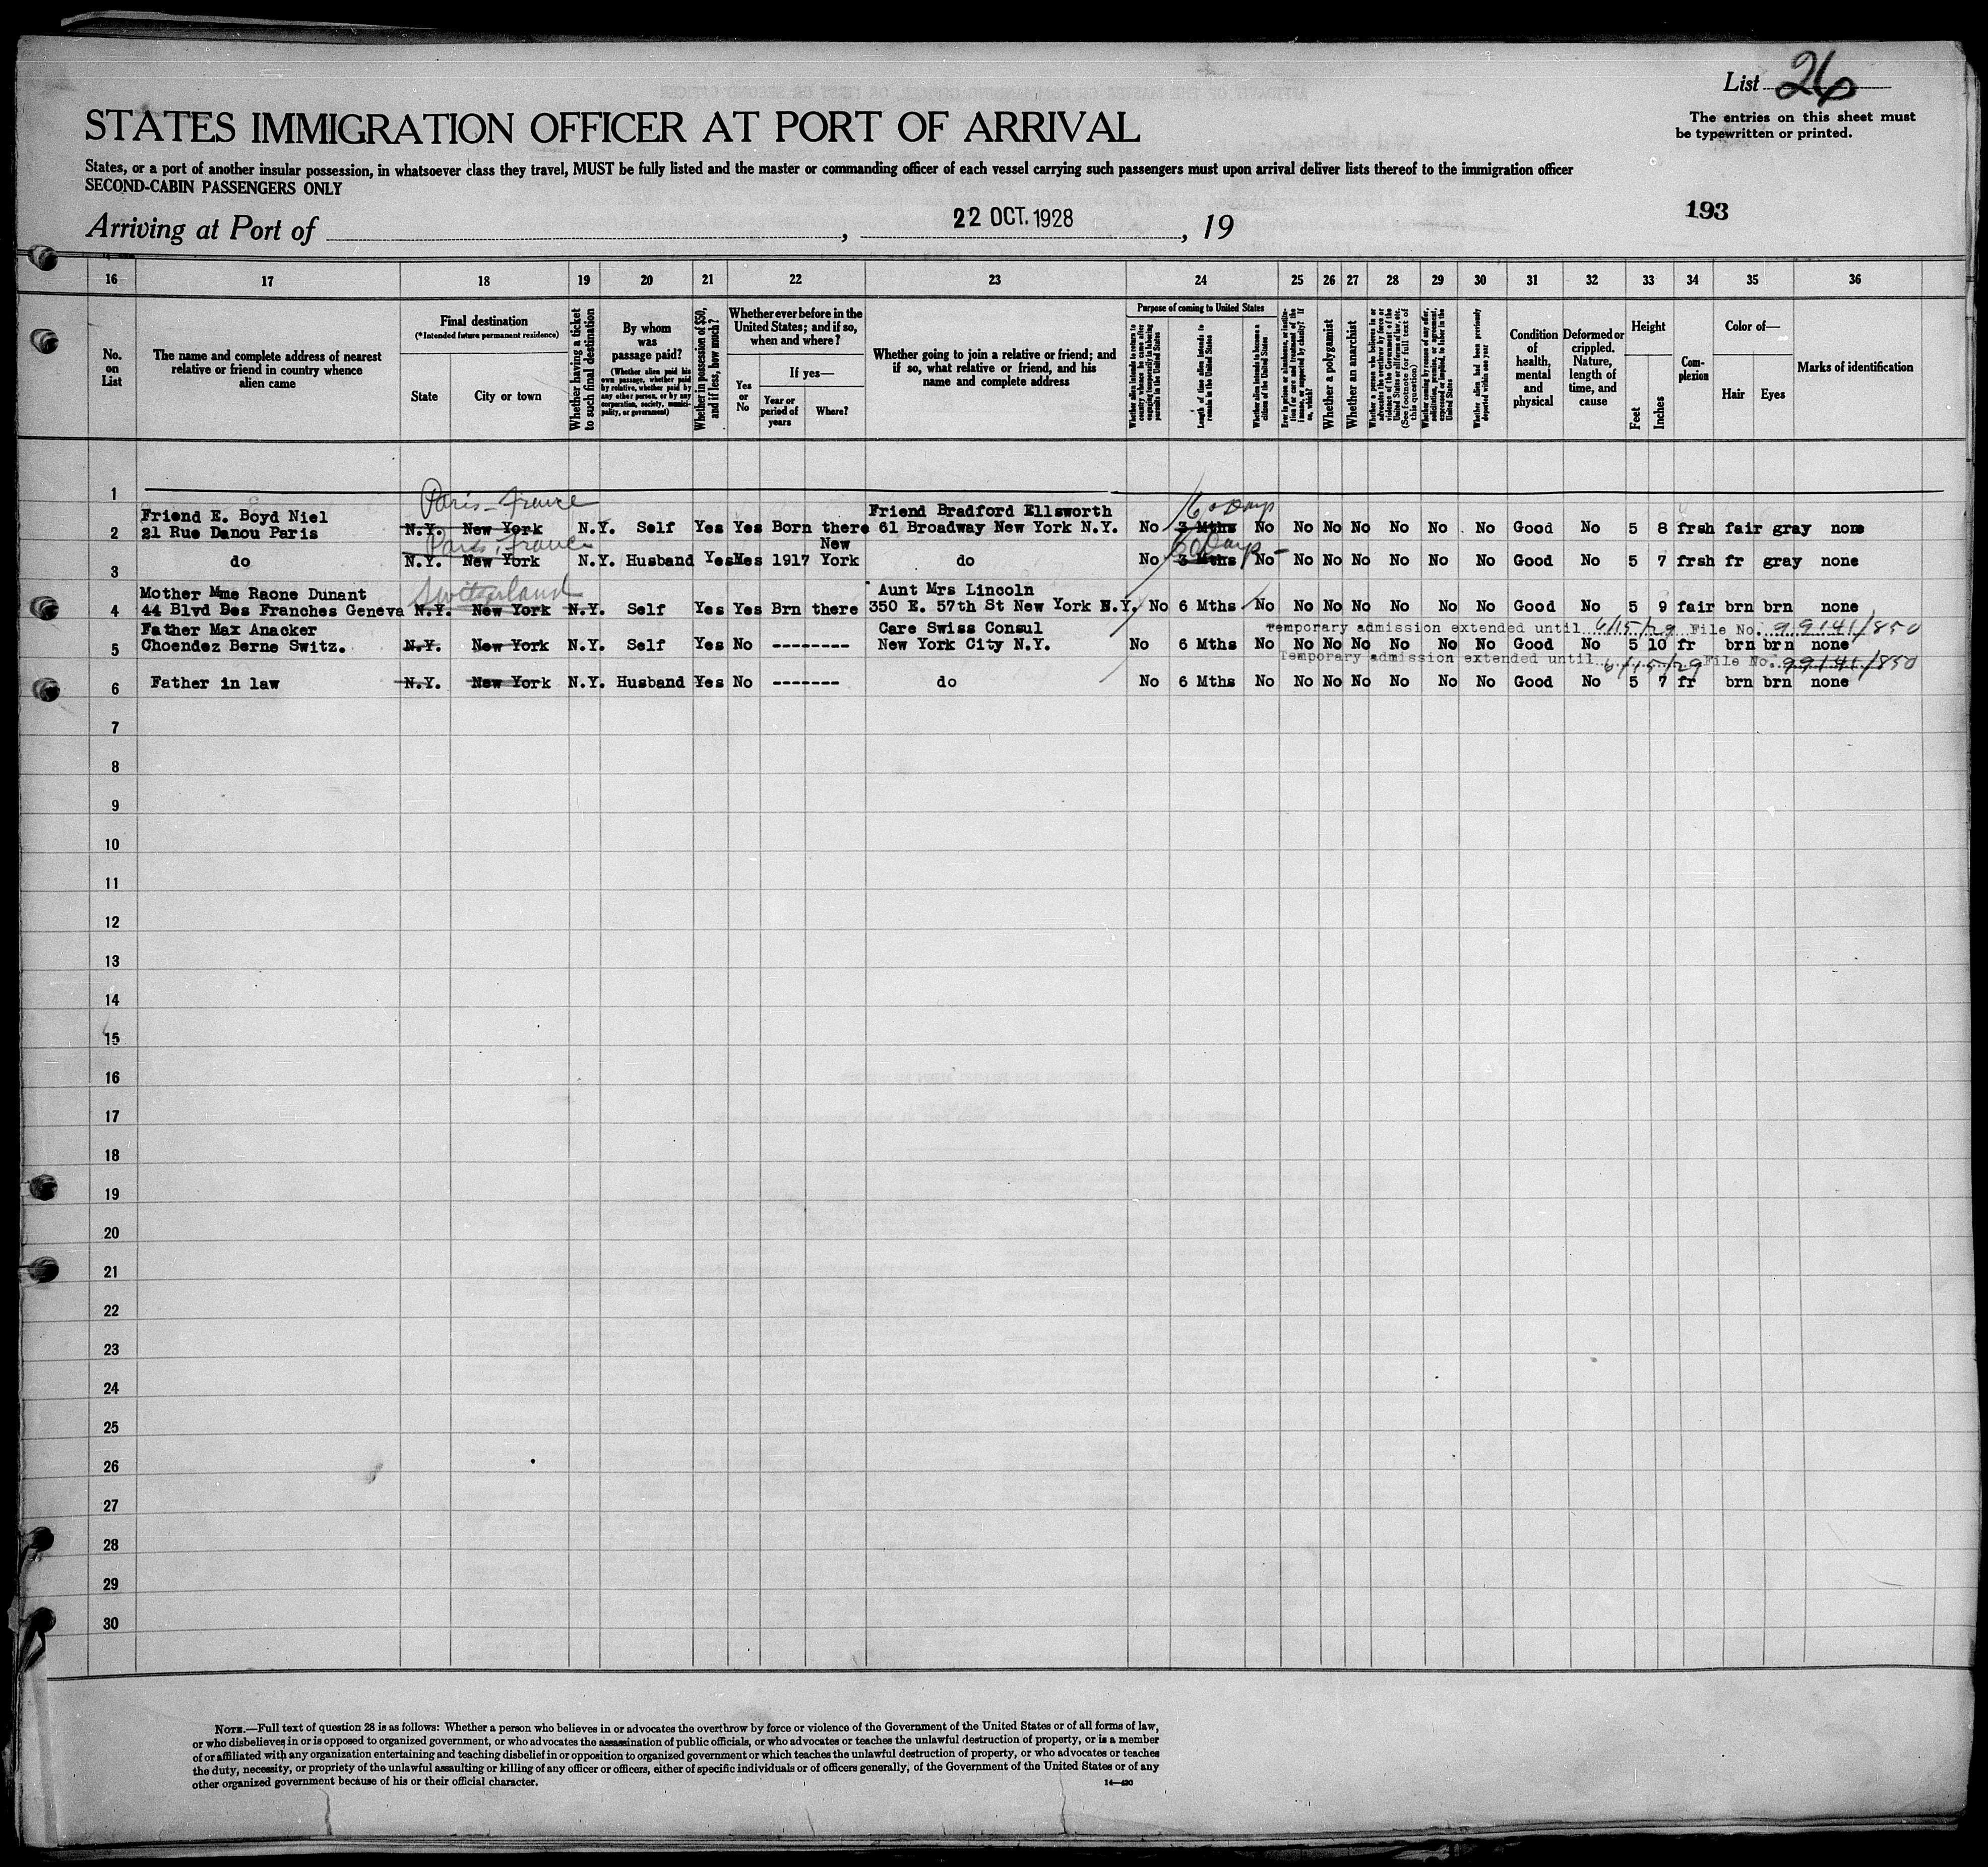 List 26
The entries on this sheet must
be typewritten or printed.
STATES IMMIGRATION OFFICER AT PORT OF ARRIVAL
States, or a port of another insular possession, in whatsoever class they travel, MUST be fully listed and the master or commanding officer of each vessel carrying such passengers must upon arrival deliver lists thereof to the immigration officer
SECOND-CABIN PASSENGERS ONLY
193
Arriving at Port of , 22 OCT. 1928 , 19
16 17 18 19 20 21 22 23 24 25 26 27 28 29 30 31 32 33 34 35 36
No. on List
The name and complete address of nearest relative or friend in country whence alien came
Final destination
(*Intended future permanent residence)
State
City or town
Whether having a ticket to such final destination
By whom was passage paid?
(Whether alien paid his own passage, whether paid by relative, whether paid by any other person, or by any corporation, society, municipality, or government)
Whether in possession of $50, and if less, how much?
Whether ever before in the United States; and if so, when and where?
Yes or No
If yes—
Year or period of years
Where?
Whether going to join a relative or friend; and if so, what relative or friend, and his name and complete address
Purpose of coming to United States
Whether alien intends to return to country whence he came after engaging temporarily in laboring pursuits in the United States
Length of time alien intends to remain in the United States
Whether alien intends to become a citizen of the United States
Ever in prison or almshouse, or institution for care and treatment of the insane, or supported by charity? If so, which?
Whether a polygamist
Whether an anarchist
Whether a person who believes in or advocates the overthrow by force or violence of the Government of the United States or all forms of law, etc. (See footnote for full text of this question)
Whether coming by reason of any offer, solicitation, promise, or agreement, expressed or implied, to labor in the United States
Whether alien had been previously deported within one year
Condition of health, mental and physical
Deformed or crippled. Nature, length of time, and cause
Height
Feet
Inches
Complexion
Color of—
Hair
Eyes
Marks of identification
1
Paris - France 60 Days
Friend E. Boyd Niel Friend Bradford Ellsworth
2 21 Rue Danou Paris N.Y. New York N.Y. Self Yes Yes Born there 61 Broadway New York N.Y. No 3 Mths No No No No No No No Good No 5 8 frsh fair gray none
Paris, France New 60 Days
3 do N.Y. New York N.Y. Husband Yes Yes 1917 York do No 3 Mths No No No No No No No Good No 5 7 frsh fr gray none
Switzerland
Mother Mme Raone Dunant Aunt Mrs Lincoln
4 44 Blvd Des Franches Geneva N.Y. New York N.Y. Self Yes Yes Brn there 350 E. 57th St New York N.Y. No 6 Mths No No No No No No No Good No 5 9 fair brn brn none
Father Max Anacker Care Swiss Consul Temporary admission extended until 6/15/29 File No. 99141/850
5 Choendez Berne Switz. N.Y. New York N.Y. Self Yes No -------- New York City N.Y. No 6 Mths No No No No No No No Good No 5 10 fr brn brn none
Temporary admission extended until 6/15/29 File No. 99141/850
6 Father in law N.Y. New York N.Y. Husband Yes No ------- do No 6 Mths No No No No No No No Good No 5 7 fr brn brn none
7
8
9
10
11
12
13
14
15
16
17
18
19
20
21
22
23
24
25
26
27
28
29
30
NOTE.—Full text of question 28 is as follows: Whether a person who believes in or advocates the overthrow by force or violence of the Government of the United States or of all forms of law,
or who disbelieves in or is opposed to organized government, or who advocates the assassination of public officials, or who advocates or teaches the unlawful destruction of property, or is a member
of or affiliated with any organization entertaining and teaching disbelief in or opposition to organized government or which teaches the unlawful destruction of property, or who advocates or teaches
the duty, necessity, or propriety of the unlawful assaulting or killing of any officer or officers, either of specific individuals or of officers generally, of the Government of the United States or of any
other organized government because of his or their official character.
14—430